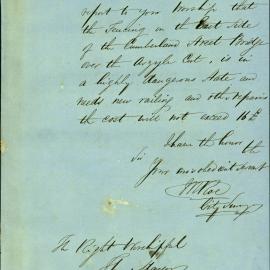 report to your Worship that
the Fencing on the East Side
of the Cumberland Street Bridge
over the Argyle Cut, is in
a highly dangerous State and
needs new railing and other repairs
the cost will not exceed
I have the honor
Sir
Your most obedient Servant
City Surv
The Right Worshipful
The Mayor